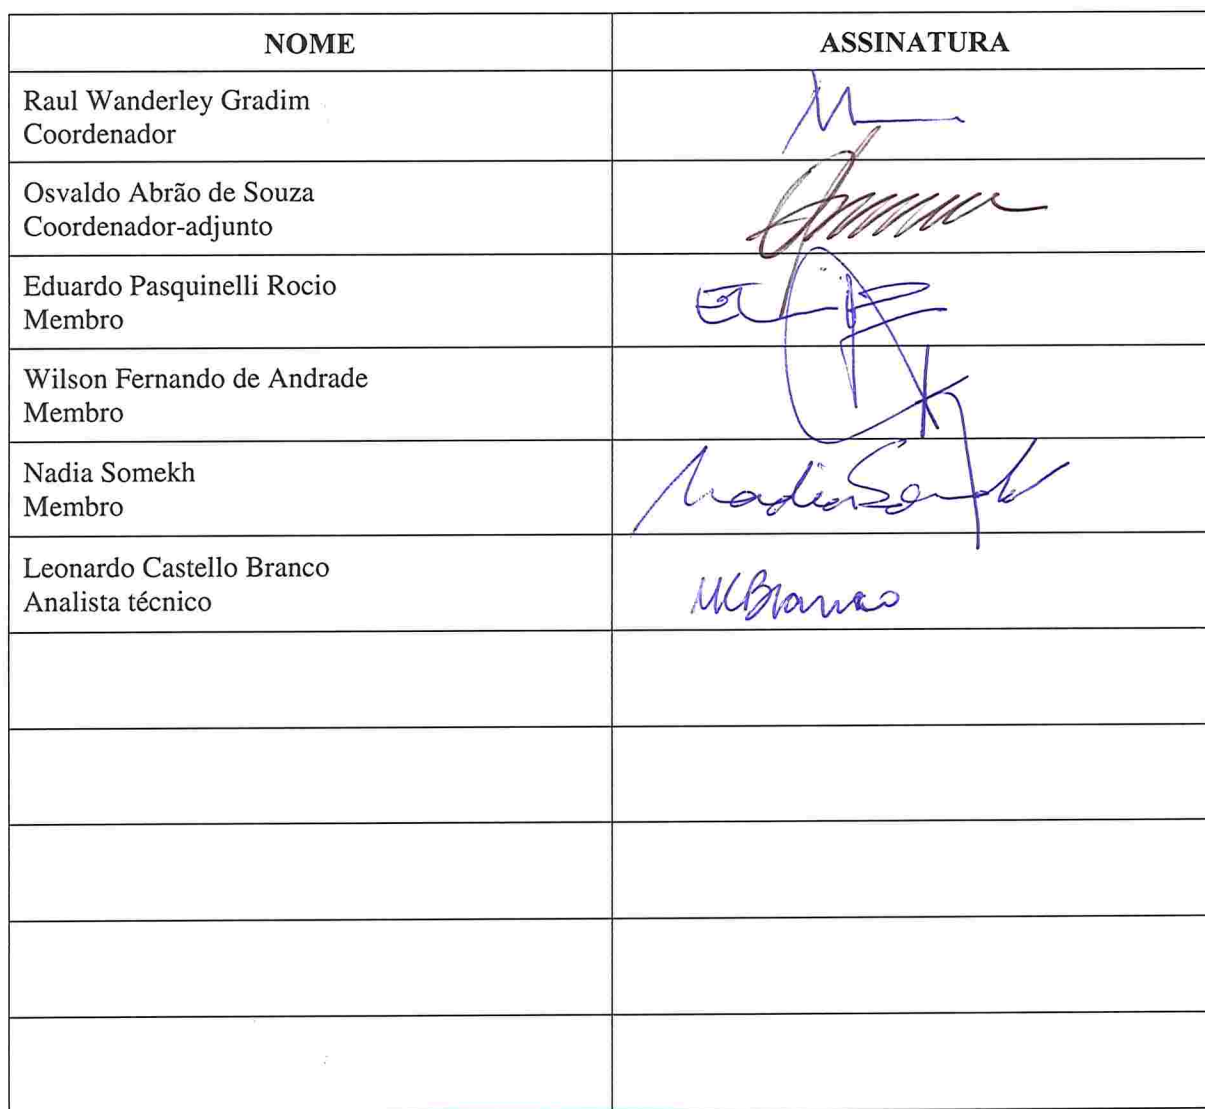 NOME
ASSINATURA
Raul Wanderley Gradim
Coordenador
Osvaldo Abrão de Souza
Coordenador-adjunto
Eduardo Pasquinelli Rocio
Membro
Wilson Fernando de Andrade
Membro
Nadia Somekh
Membro
Nadia Somekh
Leonardo Castello Branco
Analista técnico